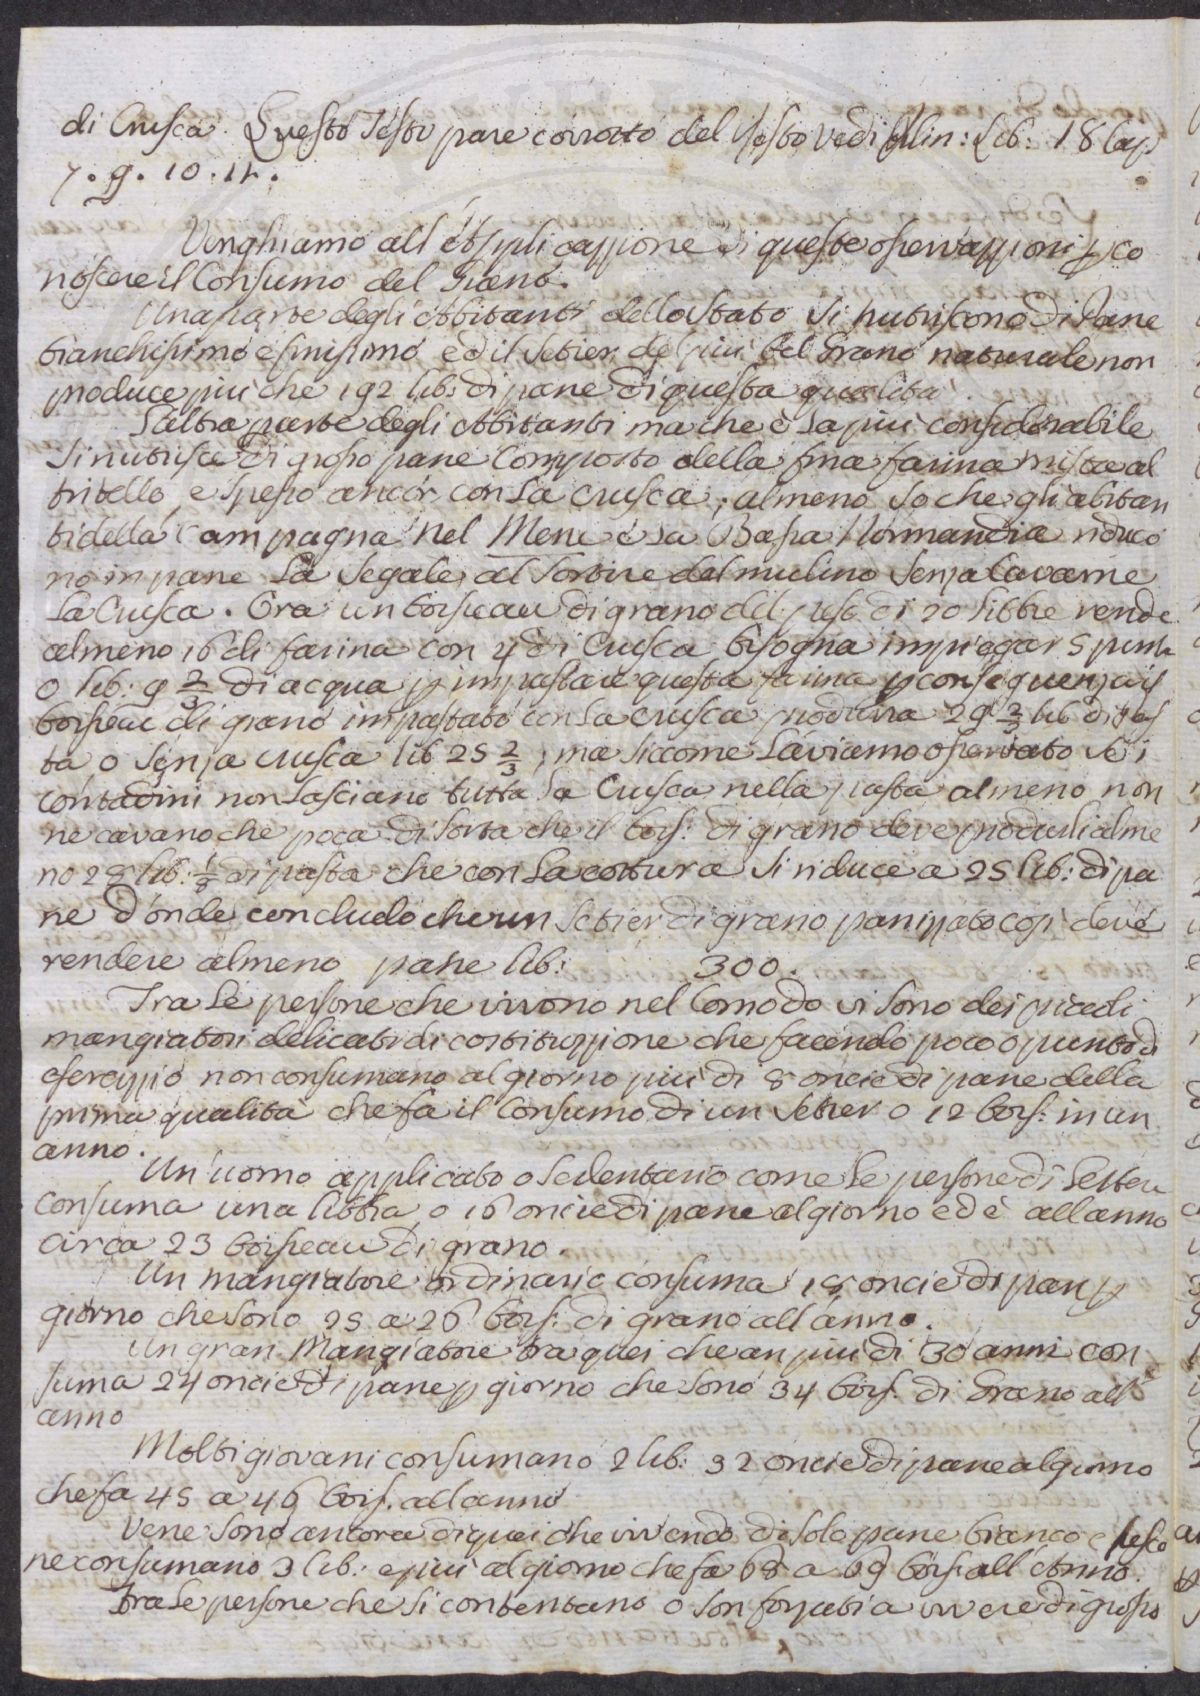 di Crusca. Questo Testo pare corrotto del resto vedi Plin: Lib: 18 Cap.
7. 9. 10. 11.
Venghiamo all'Applicazzione di queste osservazzioni p co
noscere il Consumo del Grano.
Una parte degli Abbitanti dello stato si nutriscono di Pane
bianchissimo e finissimo ed il Setier de più bel Grano naturale non
produce più che 192 lib: di pane di questa qualità.
L'altra parte degli Abbitanti ma che è la più considerabile
si nutrisce di grosso pane Composto della fina farina mista al
tritello, e spesso ancor con la crusca; almeno so che gli abitan
ti della Campagna nel Mene è la Bassa Normandia riduco
no in pane la Segale al sortire dal mulino senza Cavarne
la Crusca. Ora un boisseau di grano del peso di 20 libbre rende
almeno 16 di farina con 4 di Crusca bisogna impiegar 5 pinte
o lib: 9 2/3 di acqua p impastare questa farina p conseguenza il
boisseau di grano impastato con la crusca produrra 29 2/3 lib di pas
ta, o senza crusca lib 25 2/3; ma siccome l'aviamo osservato se i
contadini non lasciano tutta la Crusca nella pasta almeno non
ne cavano che poca di sorta che il bois: di grano deve produrli alme
no 28 lib: 1/3 di pasta che con la cottura si riduce a 25 lib: di pa
ne d'onde concludo che un Setier di grano panizzato cosi deve
rendere almeno pane lib: 300.
Tra le persone che vivono nel Comodo vi sono dei piccoli
mangiatori delicati di costituzzione che facendo poco o punto di
esercizzio non consumano al giorno più di 8 oncie di pane della
prima qualità che fa il Consumo di un Setier o 12 bois: in un
anno.
Un uomo applicato o sedentario come le persone di lettere
consuma una libbra o 16 oncie di pane al giorno ed è all'anno
circa 23 boisseau di grano.
Un mangiatore ordinario consuma 18 oncie di pan p
giorno che sono 25 a 26 bois: di grano all'anno.
Un gran Mangiatore tra quei che an più di 30 anni con
suma 24 oncie di pane p giorno che sono 34 bois: di Grano all'
anno
Molti giovani consumano 2 lib: 32 oncie di pane al giorno
che fa 45 a 46 bois. all'anno
Vene sono ancora di quei che vivendo di solo pane bianco e pesce
ne consumano 3 lib: e più al giorno che fa 68 a 69 bois all'Anno.
Tra le persone che si contentano o son forzati a vivere di grosso